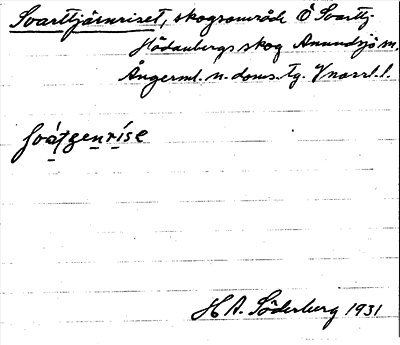 Svarttjärnriset, skogsområde Ö Svarttj.
Hädanbergs skog Anundsjö sn.
Ångerml. n. doms. tg. V/norrl. l.
svát̯genríse
H A. Söderberg 1931